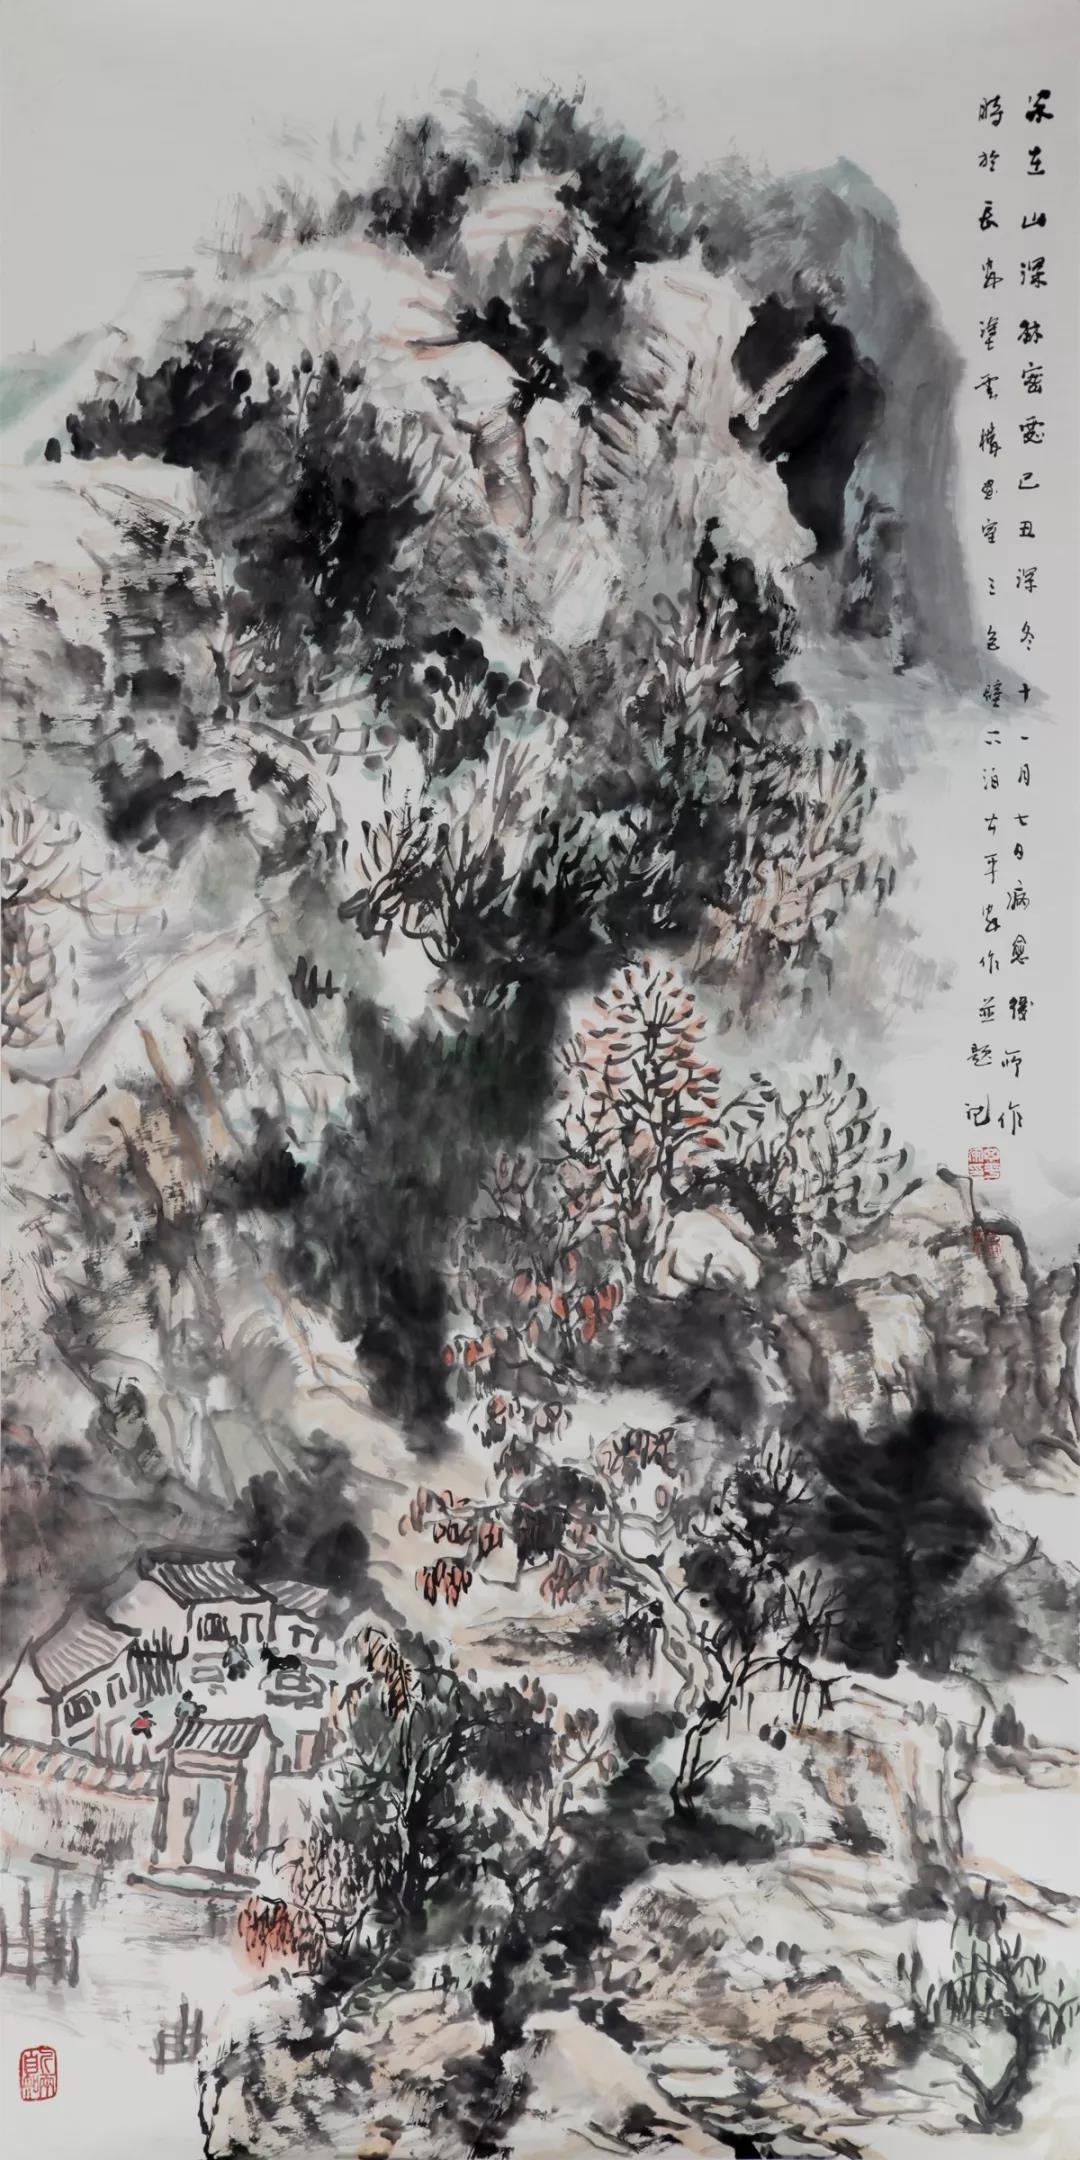 家在山深林密處己丑深冬十一月七日病愈後所作
時於長安塗雲構畫室三色壁下泊 平安作並題記